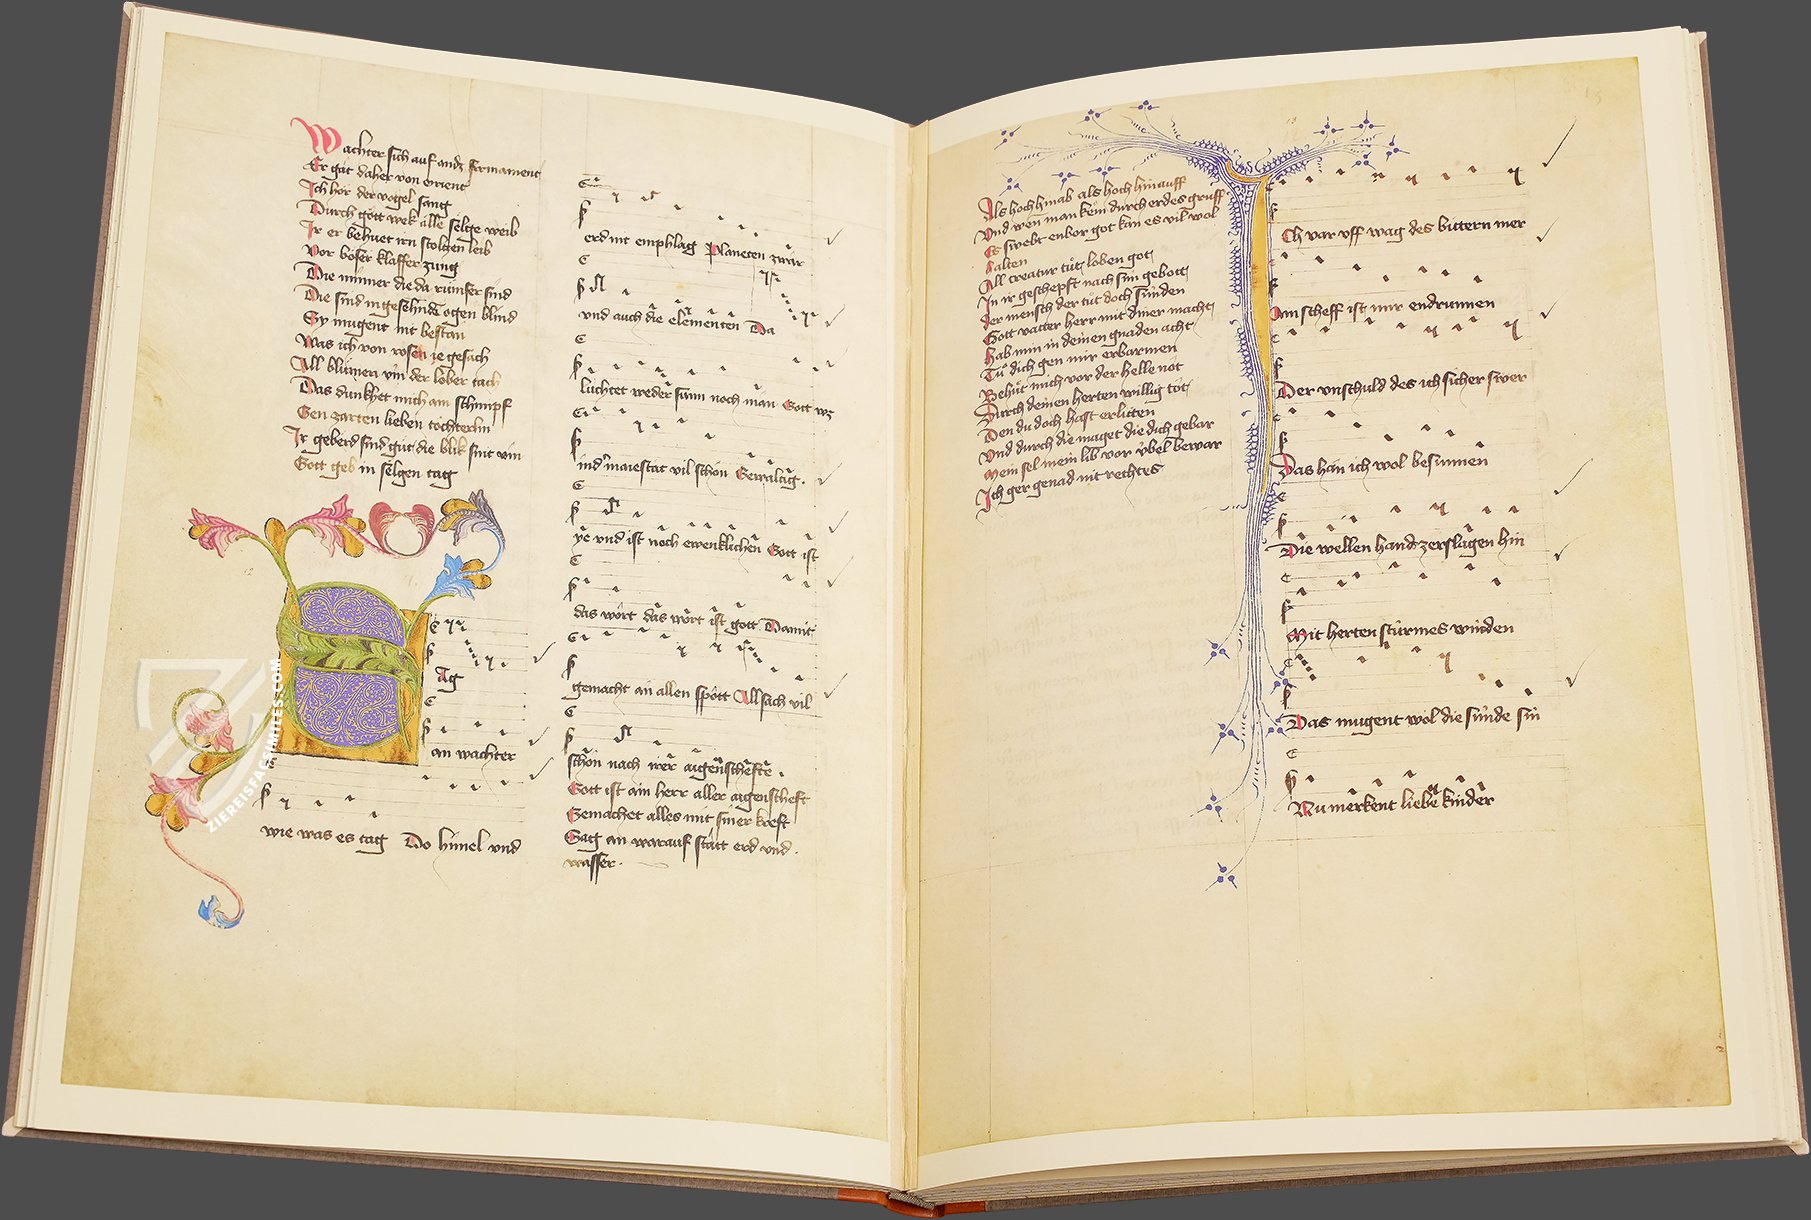 Wachter sich auf andz firmament
Er gat daher von orient
Ich hör der vogel sang
Durch gott wek alle selge weib
Ir er behuet irn stoltzen leib
Vor böser klaffer zung
Die minner die da rümser sind
Die sind in gesehnde ogen blind
Sy mugent nit bestan
Was ich von rosen ie gesach
All blümen vin der lober tach
Das dunkhet mich ain schimpf
Gen zarten lieben töchterlin
Ir geberd sind güt die blik sint vin
Gott geb in selgen tag
12
S
Ag
an wachter
wie was es tag Do himel vnd
erd nit emphlag Planeten zwar
vnd auch die elementen Da
luchtet weder sunn noch man Gott wz
ind maiestat vil schon Gewaltig.
ye vnd ist noch ewenklichen Gott ist
das wort das wort ist gott Damit
gemacht an allen spott All sach vil
schön nach irer aigenschefte.
Gott ist ain herr aller aigenscheft
Gemachet alles mit siner kreft
Sag an warauf statt erd vnd.
wasser.
ZIEREISFACSIMILES.COM
13
Als hoch hinab als hoch hinauff
Vnd wenn man kem durch erdes gruff
Es swebt enbor got kan es vil wol
halten
All creatur tüt loben got
In ir geschepft nach sin gebott
Der mensch der tüt doch sünden
Gott vatter herr mit diner macht
Hab min in deinen gnaden acht
Tů dich gen mir erbarmen
Behüt mich vor der helle not
Durch deinen herten willig tot
Den du doch hast erlitten
Vnd durch die maget die dich gebar
Mein sel mein lib vor übel bewar
Ich ger genad nit rechtes
I
Ch var vff wag des bittern mer
Min scheff ist mir endrunnen
Der vnschuld des ich sicher swer
Das han ich wol besunnen
Die wellen hand zerslagen hin
Mit herten sturmes winden
Das mugent wol die sunde sin
Nu merkent liebe kinder